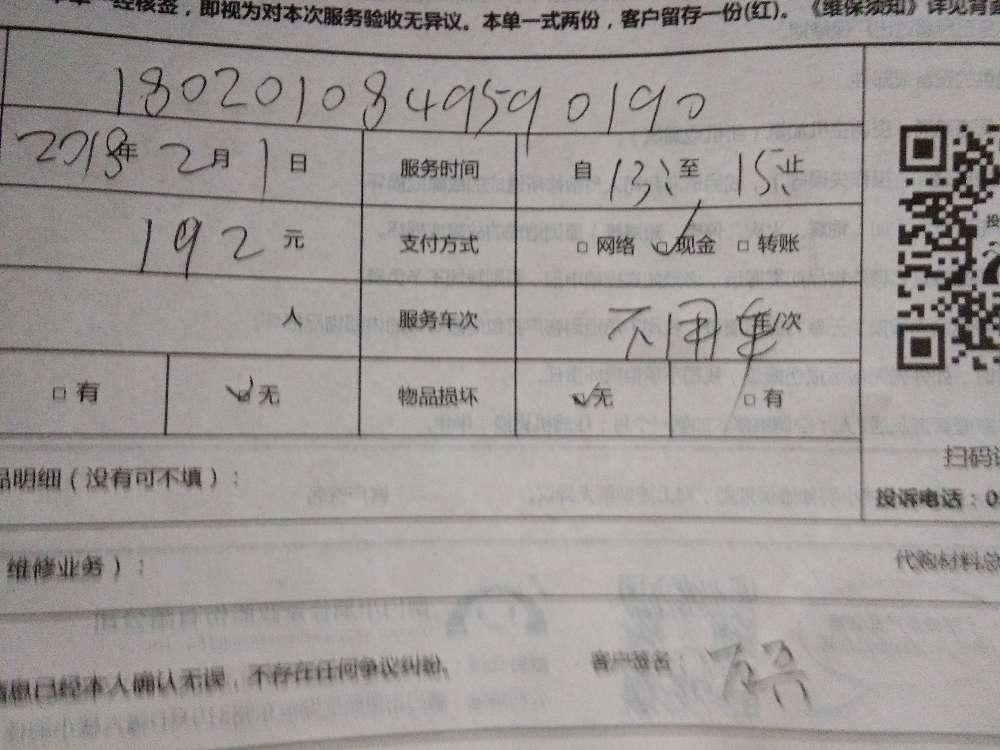 一经核签，即视为对本次服务验收无异议。本单一式两份，客户留存一份(红)。《维保须知》详见背
1802010849590190
2018年 2月 1日 服务时间 自 13: 至 15: 止
192 元 支付方式 □ 网络 □现金 □ 转账
人 服务车次 不用车 车/次
□ 有 □无 物品损坏 □无 □ 有
品明细（没有可不填）：
扫码
投诉电话：0
维修业务）：
代购材料总
信息已经本人确认无误，不存在任何争议纠纷。 客户签名：